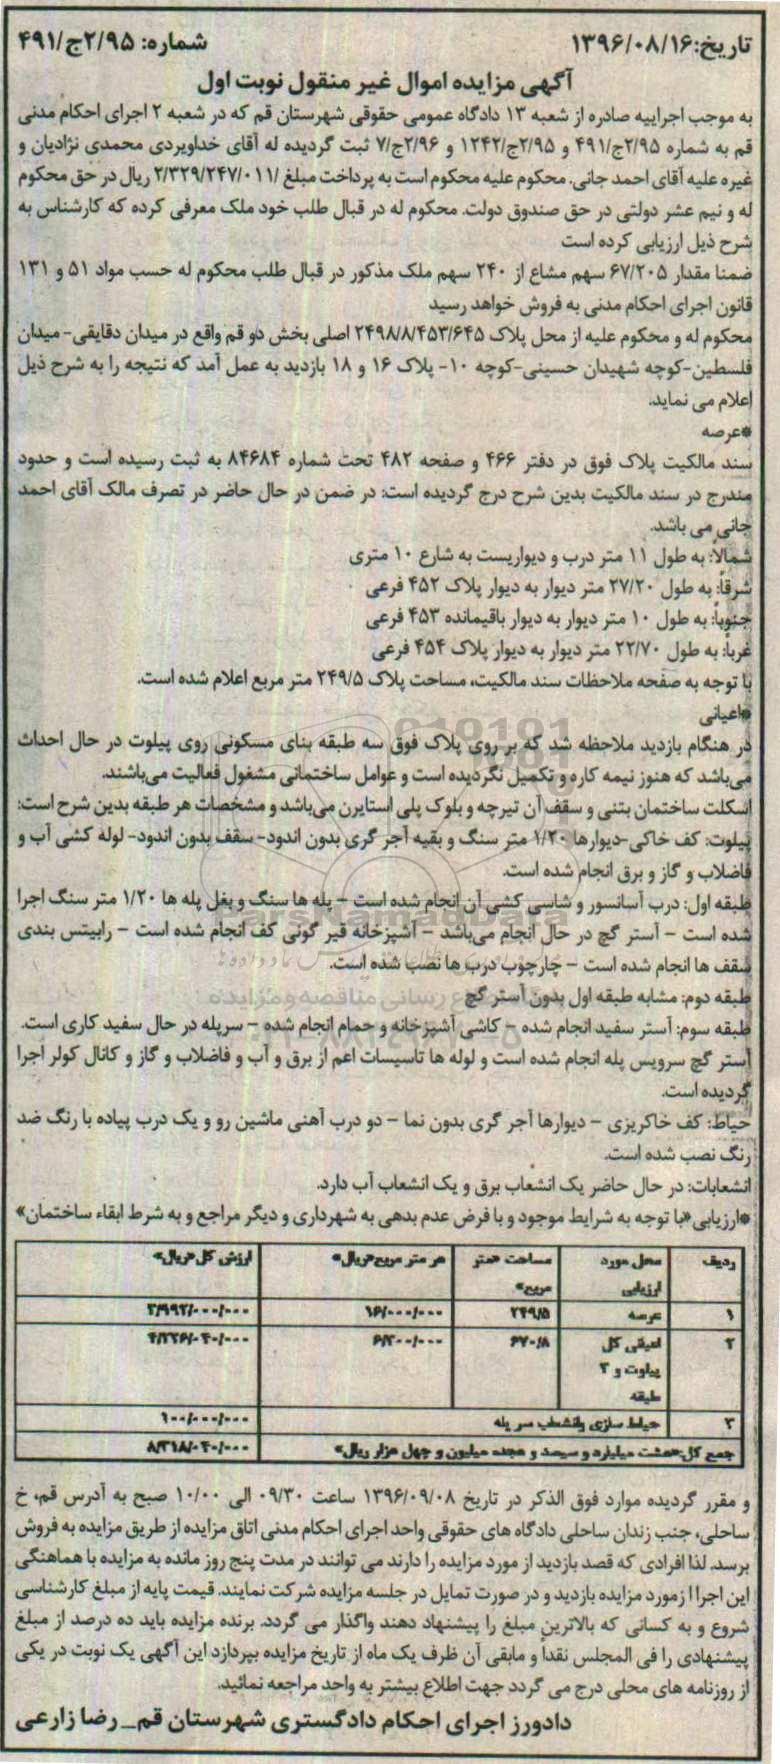 تاریخ: ۱۳۹۶/۰۸/۱۶
شماره: ۲/۹۵ج/۴۹۱
آگهی مزایده اموال غیر منقول نوبت اول
به موجب اجراییه صادره از شعبه ۱۳ دادگاه عمومی حقوقی شهرستان قم که در شعبه ۲ اجرای احکام مدنی
قم به شماره ۲/۹۵ج/۴۹۱ و ۲/۹۵ج/۱۲۴۲ و ۲/۹۶ج/۷ ثبت گردیده له آقای خداویردی محمدی نژادیان و
غیره علیه آقای احمد جانی. محکوم علیه محکوم است به پرداخت مبلغ /۲/۳۲۹/۲۴۷/۰۱۱ ریال در حق محکوم
له و نیم عشر دولتی در حق صندوق دولت. محکوم له در قبال طلب خود ملک معرفی کرده که کارشناس به
شرح ذیل ارزیابی کرده است
ضمنا مقدار ۶۷/۲۰۵ سهم مشاع از ۲۴۰ سهم ملک مذکور در قبال طلب محکوم له حسب مواد ۵۱ و ۱۳۱
قانون اجرای احکام مدنی به فروش خواهد رسید
محکوم له و محکوم علیه از محل پلاک ۲۴۹۸/۸/۴۵۳/۶۴۵ اصلی بخش دو قم واقع در میدان دقایقی- میدان
فلسطین-کوچه شهیدان حسینی-کوچه ۱۰- پلاک ۱۶ و ۱۸ بازدید به عمل آمد که نتیجه را به شرح ذیل
اعلام می نماید.
*عرصه
سند مالکیت پلاک فوق در دفتر ۴۶۶ و صفحه ۴۸۲ تحت شماره ۸۴۶۸۴ به ثبت رسیده است و حدود
مندرج در سند مالکیت بدین شرح درج گردیده است: در ضمن در حال حاضر در تصرف مالک آقای احمد
جانی می باشد.
شمالاً: به طول ۱۱ متر درب و دیواریست به شارع ۱۰ متری
شرقاً: به طول ۲۷/۲۰ متر دیوار به دیوار پلاک ۴۵۲ فرعی
جنوباً: به طول ۱۰ متر دیوار به دیوار باقیمانده ۴۵۳ فرعی
غرباً: به طول ۲۲/۷۰ متر دیوار به دیوار پلاک ۴۵۴ فرعی
با توجه به صفحه ملاحظات سند مالکیت، مساحت پلاک ۲۴۹/۵ متر مربع اعلام شده است.
*اعیانی
در هنگام بازدید ملاحظه شد که بر روی پلاک فوق سه طبقه بنای مسکونی روی پیلوت در حال احداث
می‌باشد که هنوز نیمه کاره و تکمیل نگردیده است و عوامل ساختمانی مشغول فعالیت می‌باشند.
اسکلت ساختمان بتنی و سقف آن تیرچه و بلوک پلی استایرن می‌باشد و مشخصات هر طبقه بدین شرح است:
پیلوت: کف خاکی-دیوارها ۱/۲۰ متر سنگ و بقیه آجر گری بدون اندود- سقف بدون اندود- لوله کشی آب و
فاضلاب و گاز و برق انجام شده است.
طبقه اول: درب آسانسور و شاسی کشی آن انجام شده است – پله ها سنگ و بغل پله ها ۱/۲۰ متر سنگ اجرا
شده است – آستر گچ در حال انجام می‌باشد – آشپزخانه قیر گونی کف انجام شده است – رابیتس بندی
سقف ها انجام شده است – چارچوب درب ها نصب شده است.
طبقه دوم: مشابه طبقه اول بدون آستر گچ
طبقه سوم: آستر سفید انجام شده – کاشی آشپزخانه و حمام انجام شده – سرپله در حال سفید کاری است.
آستر گچ سرویس پله انجام شده است و لوله ها تاسیسات اعم از برق و آب و فاضلاب و گاز و کانال کولر اجرا
گردیده است.
حیاط: کف خاکریزی – دیوارها آجر گری بدون نما – دو درب آهنی ماشین رو و یک درب پیاده با رنگ ضد
رنگ نصب شده است.
انشعابات: در حال حاضر یک انشعاب برق و یک انشعاب آب دارد.
*ارزیابی«با توجه به شرایط موجود و با فرض عدم بدهی به شهرداری و دیگر مراجع و به شرط ابقاء ساختمان»
ردیف | محل مورد ارزیابی | مساحت «متر مربع» | هر متر مربع«ریال» | ارزش کل«ریال»
۱ | عرصه | ۲۴۹/۵ | ۱۶/۰۰۰/۰۰۰ | ۳/۹۹۲/۰۰۰/۰۰۰
۲ | اعیانی کل پیلوت و ۳ طبقه | ۶۷۰/۸ | ۶/۳۰۰/۰۰۰ | ۴/۲۲۶/۰۴۰/۰۰۰
۳ | حیاط سازی وانشعاب سر پله | ۱۰۰/۰۰۰/۰۰۰
جمع کل:«هشت میلیارد و سیصد و هجده میلیون و چهل هزار ریال» | ۸/۳۱۸/۰۴۰/۰۰۰
و مقرر گردیده موارد فوق الذکر در تاریخ ۱۳۹۶/۰۹/۰۸ ساعت ۰۹/۳۰ الی ۱۰/۰۰ صبح به آدرس قم، خ
ساحلی، جنب زندان ساحلی دادگاه های حقوقی واحد اجرای احکام مدنی اتاق مزایده از طریق مزایده به فروش
برسد. لذا افرادی که قصد بازدید از مورد مزایده را دارند می توانند در مدت پنج روز مانده به مزایده با هماهنگی
این اجرا از مورد مزایده بازدید و در صورت تمایل در جلسه مزایده شرکت نمایند. قیمت پایه از مبلغ کارشناسی
شروع و به کسانی که بالاترین مبلغ را پیشنهاد دهند واگذار می گردد. برنده مزایده باید ده درصد از مبلغ
پیشنهادی را فی المجلس نقداً و مابقی آن ظرف یک ماه از تاریخ مزایده بپردازد این آگهی یک نوبت در یکی
از روزنامه های محلی درج می گردد جهت اطلاع بیشتر به واحد مراجعه نمائید.
دادورز اجرای احکام دادگستری شهرستان قم_ رضا زارعی
ParsNamadData